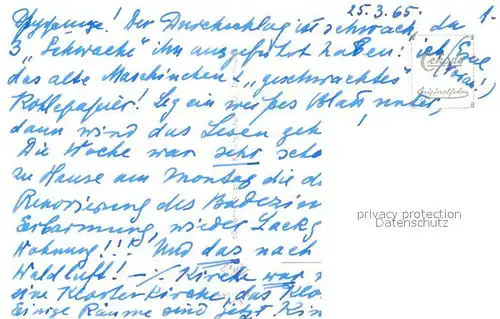 25.3.65. 1.
! Der Durchschlag ist schwach, da
3 „Schwache" ihn ausgeführt haben: ich (Eure
das alte Maschinchen & „geschwächtes"
Kohlepapier! Leg ein weißes Blatt unter,
dann wird das Lesen geh
Die Woche war sehr scho
zu Hause am Montag die d
Renovierung des Badezim
Erbarmung, wieder Lackg
Wohnung!!! Und das nach
Waldluft! –/– Kirche war
eine Klosterkirche, das Klo
Einige Räume sind jetzt Kin
Originalfoto
privacy protection
Datenschutz